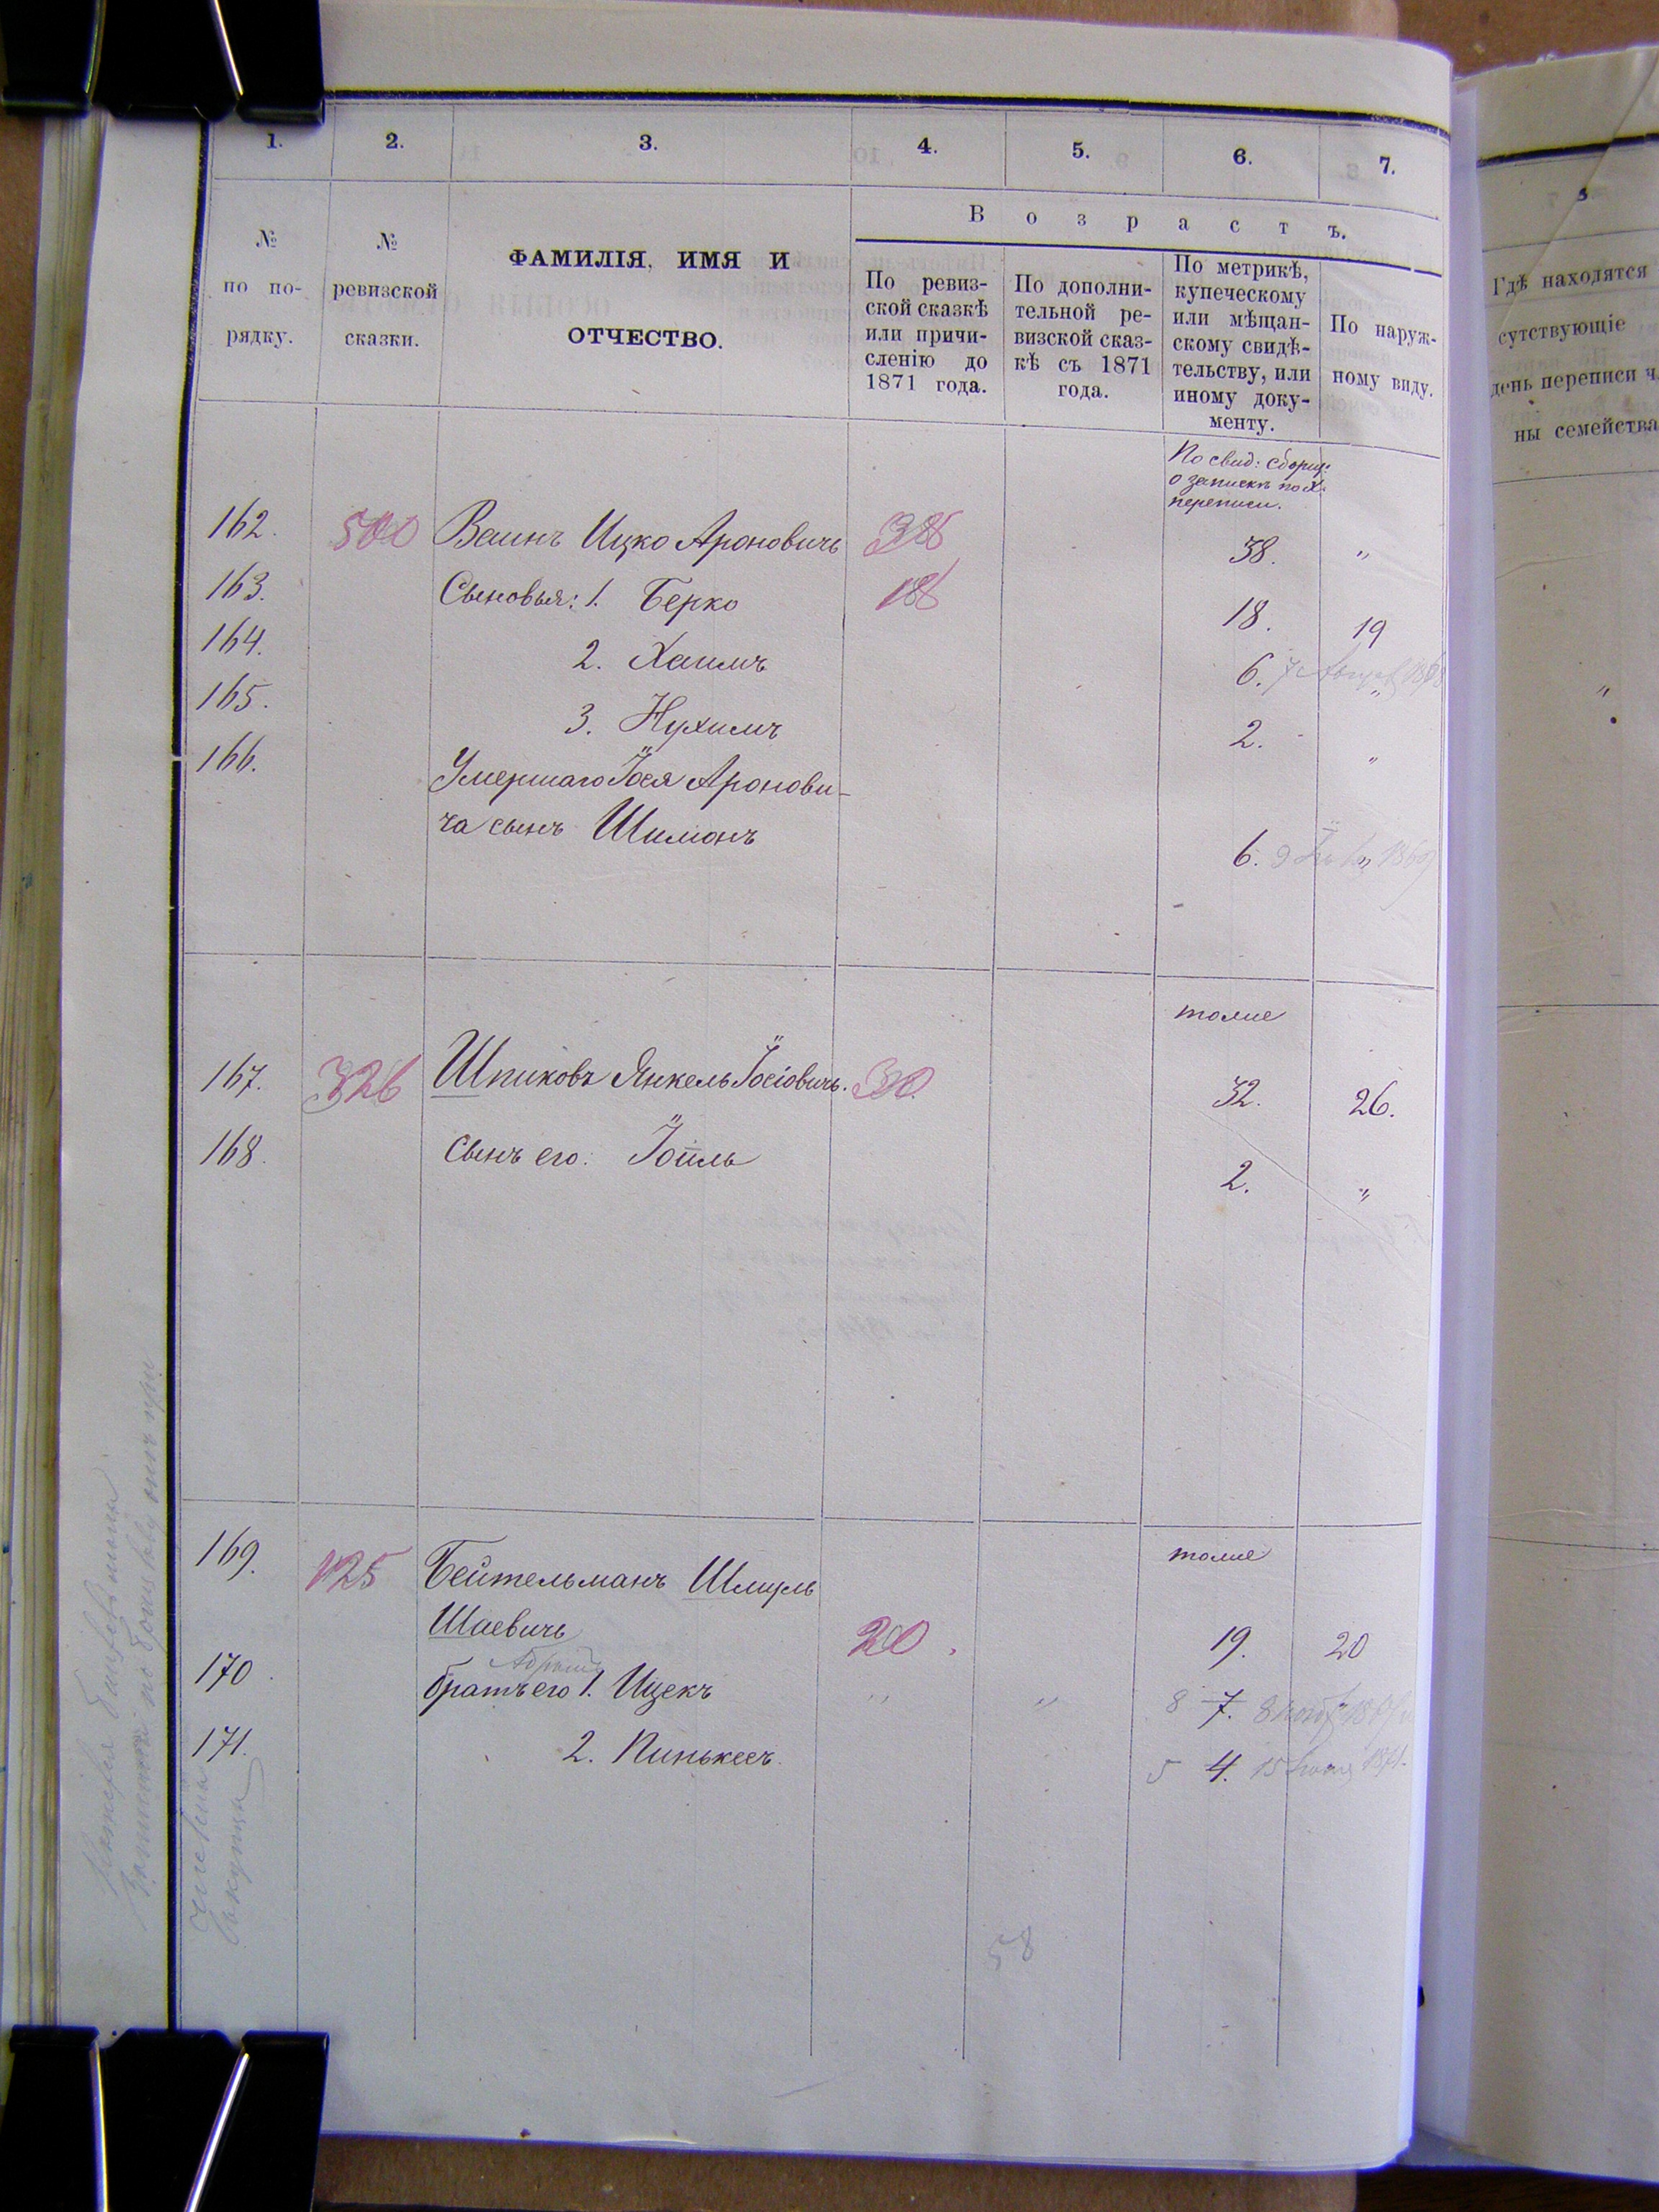 1. 2. 3. 4. 5. 6. 7.
№ по по-рядку.
№ ревизской сказки.
ФАМИЛІЯ, ИМЯ И
ОТЧЕСТВО.
Возрастъ.
По ревиз-
ской сказкѣ
или причи-
сленію до
1871 года.
По дополни-
тельной ре-
визской сказ-
кѣ съ 1871
года.
По метрикѣ,
купеческому
или мѣщан-
скому свидѣ-
тельству, или
иному доку-
менту.
По наруж-
ному виду.
По свид: сборщ:
о записки по X.
переписи.
162. 500 Ваинъ Ицко Ароновичъ 38 38. "
163. Сыновья: 1. Берко 18 18. 19
164. 2. Хаимъ 6. 7 1868 "
165. 3. Нухимъ 2. "
166. Умершаго Іося Аронови-
ча сынъ Шимонъ 6. 9 1869 "
тоже
167. 326 Шпиковъ Янкель Іосіовичъ. 30. 32. 26.
168. Сынъ его: Іойль 2. "
тоже
169. 125 Бейтельманъ Шмуль
Шаевичъ 20. 19. 20
Абрамъ
170. братъ его 1. Ицекъ " " 8 7. 8
171. 2. Пинькесъ. 5 4. 15 1871.
58
8
Гдѣ находятся
сутствующіе
день переписи ч
ны семейства
"